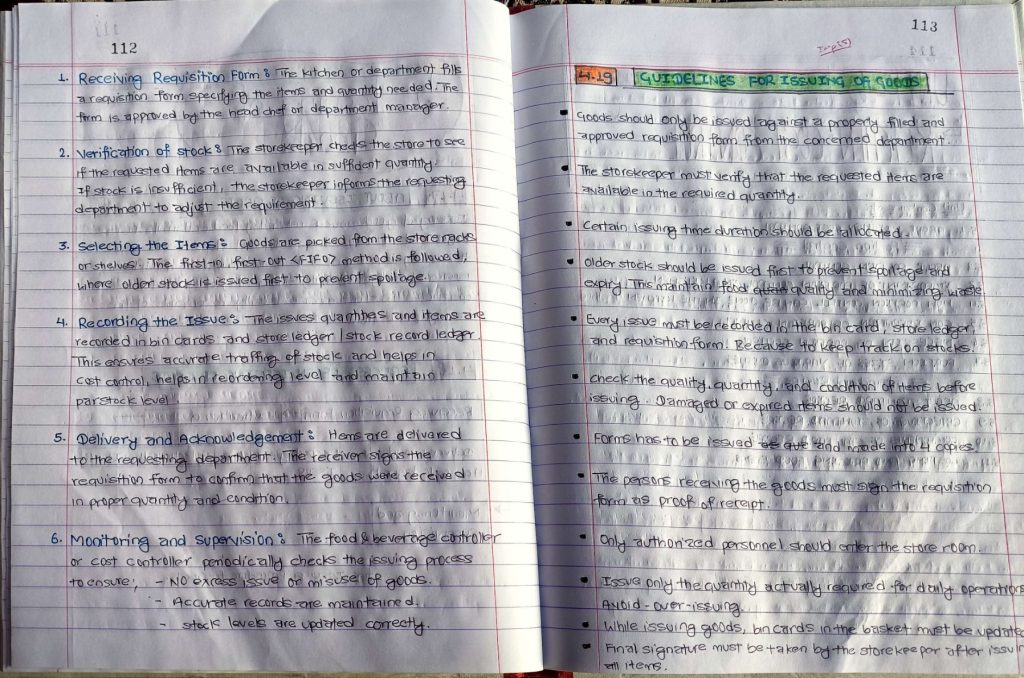 112
1. Receiving Requisition Form : The kitchen or department fills
a requisition form specifying the items and quantity needed. The
form is approved by the head chef or department manager.
2. Verification of stock : The storekeeper checks the store to see
if the requested items are available in sufficient quantity.
If stock is insufficient, the storekeeper informs the requesting
department to adjust the requirement.
3. Selecting the Items : Goods are picked from the store racks
or shelves. The first-in first-out <FIFO> method is followed,
where older stock is issued first to prevent spoilage.
4. Recording the Issue : The issues quantities and items are
recorded in bin cards and store ledger / stock record ledger.
This ensures accurate traffing of stock and helps in
cost control, helps in reordering level and maintain
par stock level.
5. Delivery and Acknowledgement : Items are delivered
to the requesting department. The receiver signs the
requisition form to confirm that the goods were received
in proper quantity and condition.
6. Monitoring and supervision : The food & beverage controller
or cost controller periodically checks the issuing process
to ensure; - NO excess issue or misuse of goods.
- Accurate records are maintained.
- stock levels are updated correctly.
113
Imp(5)
4.19 GUIDELINES FOR ISSUING OF GOODS
• Goods should only be issued against a properly filled and
approved requisition form from the concerned department.
• The storekeeper must verify that the requested items are
available in the required quantity.
• Certain issuing time duration should be allocated.
• Older stock should be issued first to prevent spoilage and
expiry. This maintain food quality and minimizing waste.
• Every issue must be recorded in the bin card, store ledger,
and requisition form. Because to keep track on stocks.
• Check the quality, quantity, and condition of items before
issuing. Damaged or expired items should not be issued.
• Forms has to be issued and made into 4 copies.
• The persons receiving the goods must sign the requisition
form as proof of receipt.
• Only authorized personnel should enter the store room.
• Issue only the quantity actually required for daily operations
Avoid - over-issuing.
• While issuing goods, bin cards in the basket must be update
• Final signature must be taken by the storekeeper after issuin
all items.